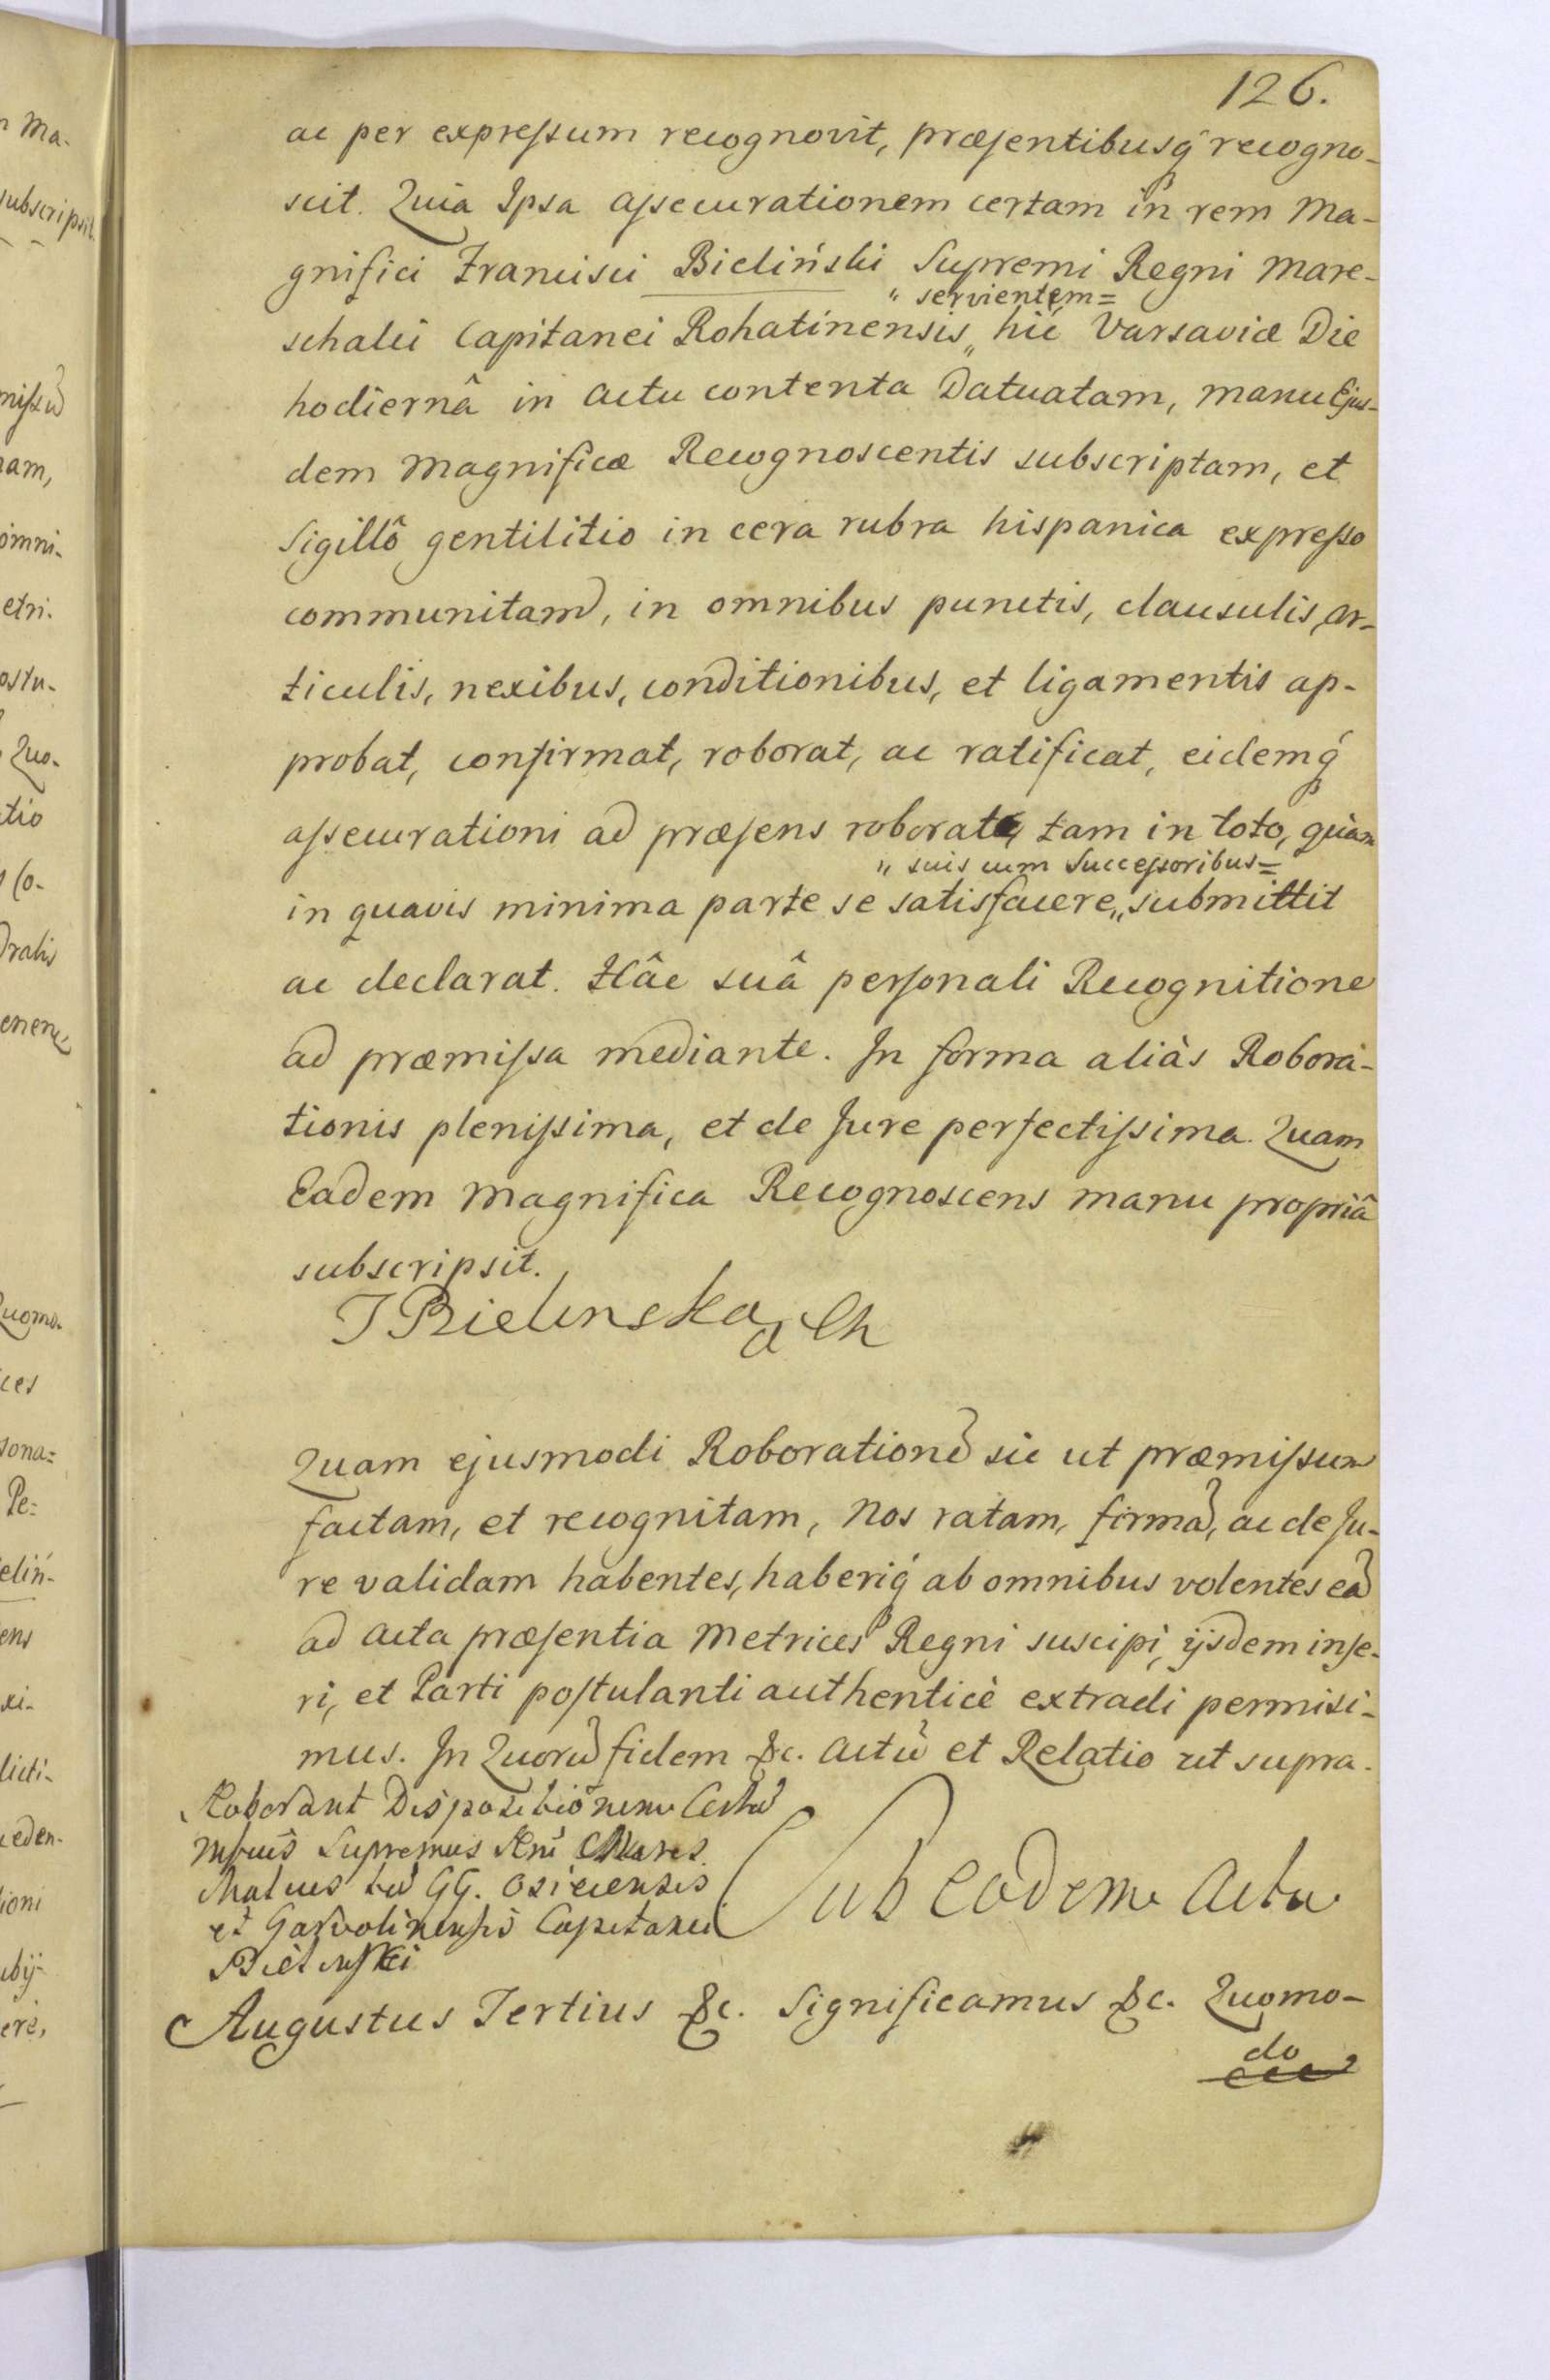 126.
ac per expressum recognovit, præsentibusq́ recogno-
scit. Quia Ipsa assecurationem certam in rem Ma-
gnifici Francisci Bieliński Supremi Regni Mare-
" servientem=
schalci Capitanei Rohatinensis „ hic Varsaviæ Die
hodiernâ in actu contenta Datuatam, manu Ejus-
dem Magnificæ Recognoscentis subscriptam, et
Sigillô gentilitio in cera rubra hispanica expresso
communitam, in omnibus punctis, clausulis, ar-
ticulis, nexibus, conditionibus, et ligamentis ap-
probat, confirmat, roborat, ac ratificat, eidemq́
assecurationi ad præsens roboratæ, tam in toto, quàm
" suis cum Successoribus=
in quavis minima parte se satisfacere „ submittit
ac declarat. Hâc suâ personali Recognitione
ad præmissa mediante. In forma aliàs Robora-
tionis plenissima, et de Jure perfectissima. Quam
Eadem Magnifica Recognoscens manu propriâ
subscripsit.
T Bielinska
Quam ejusmodi Roboratione͂ sic ut præmissum
factam, et recognitam, Nos ratam, firma͂, ac de Ju-
re validam habentes, haberiq́ ab omnibus volentes ea͂
ad Acta præsentia Metrices Regni suscipi, ijsdem inse-
ri, et Parti postulanti authenticè extradi permisi-
mus. In Quoru͂ fidem &c. Actu͂ et Relatio ut supra.
Roborant Dispositionem
Supremus Mares.
GG. Osiecensis
et Garvolinensis Capitanei
Bielinski
Sub eodem Actu
Augustus Tertius &c. Significamus &c. Quomo-
do